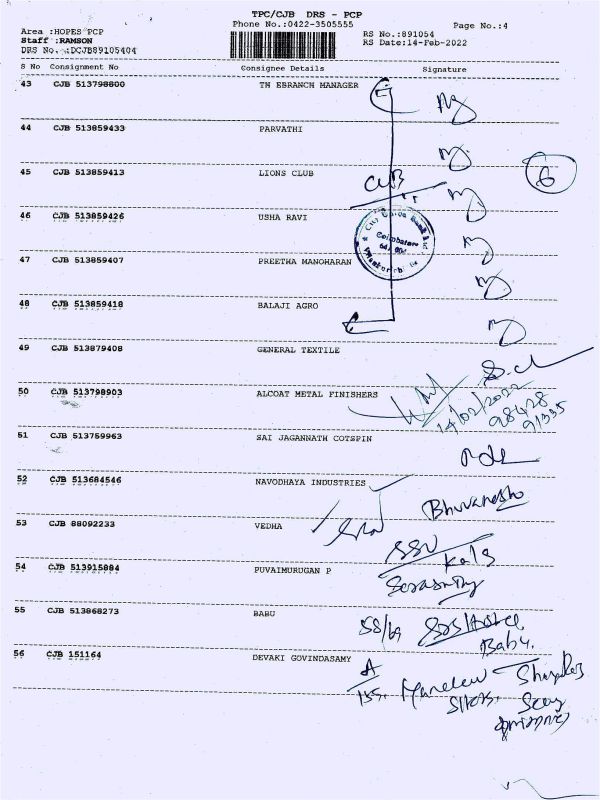 TPC/CJB DRS - PCP
Area :HOPES PCP Phone No.:0422-3505555 Page No.:4
Staff :RAMSON RS No.:891054
DRS No. :DCJB89105404 RS Date:14-Feb-2022
S No Consignment No Consignee Details Signature
43 CJB 513798800 TN EBRANCH MANAGER
44 CJB 513859433 PARVATHI
45 CJB 513859413 LIONS CLUB
CUB
6
46 CJB 513859426 USHA RAVI
City Union Bank
Coimbatore
47 CJB 513859407 PREETHA MANOHARAN
48 CJB 513859418 BALAJI AGRO
49 CJB 513879408 GENERAL TEXTILE
50 CJB 513798903 ALCOAT METAL FINISHERS
14/02/2022
98428
91335
51 CJB 513759963 SAI JAGANNATH COTSPIN
52 CJB 513684546 NAVODHAYA INDUSTRIES
53 CJB 88092233 VEDHA
54 CJB 513915884 PUVAIMURUGAN P
55 CJB 513868273 BABU
Babu.
56 CJB 151164 DEVAKI GOVINDASAMY